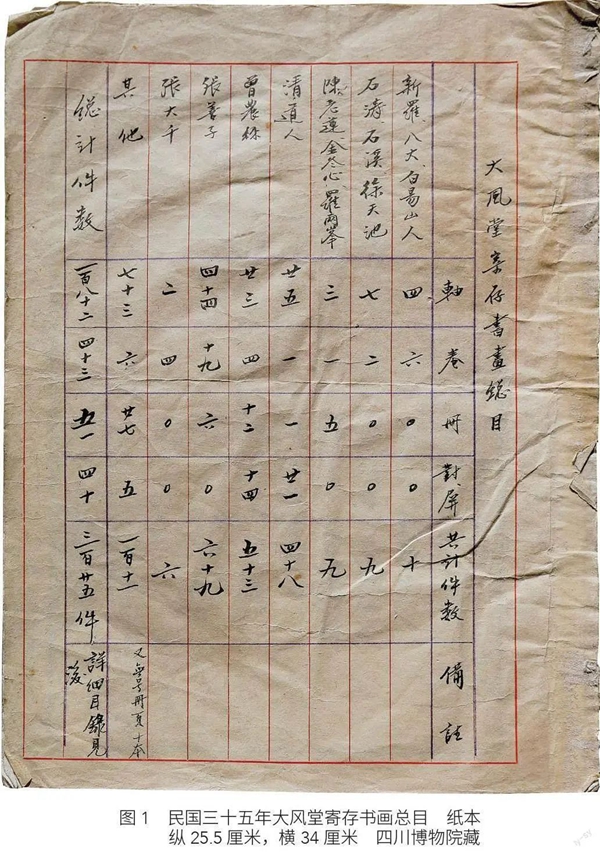 大風堂寄存書畫總目
軸 卷 冊 對、屏 共計件數 備註
新羅、八大、白昜山人 四 六 〇 〇 十
石濤、石溪、徐天池 七 二 〇 〇 九
陳老蓮、金冬心、羅兩峯 三 一 五 〇 九
清道人 廿五 一 一 廿一 四十八
曾農髯 廿三 四 十二 十四 五十三
張善子 四十四 十九 六 〇 六十九
張大千 二 四 〇 〇 六
其他 七十三 六 廿七 五 一百十一 又無号冊頁十本
總計件數 一百八十二 四十三 五一 四十 三百廿五件 詳細目錄見後
图 1 民国三十五年大风堂寄存书画总目 纸本
纵 25.5 厘米，横 34 厘米 四川博物院藏